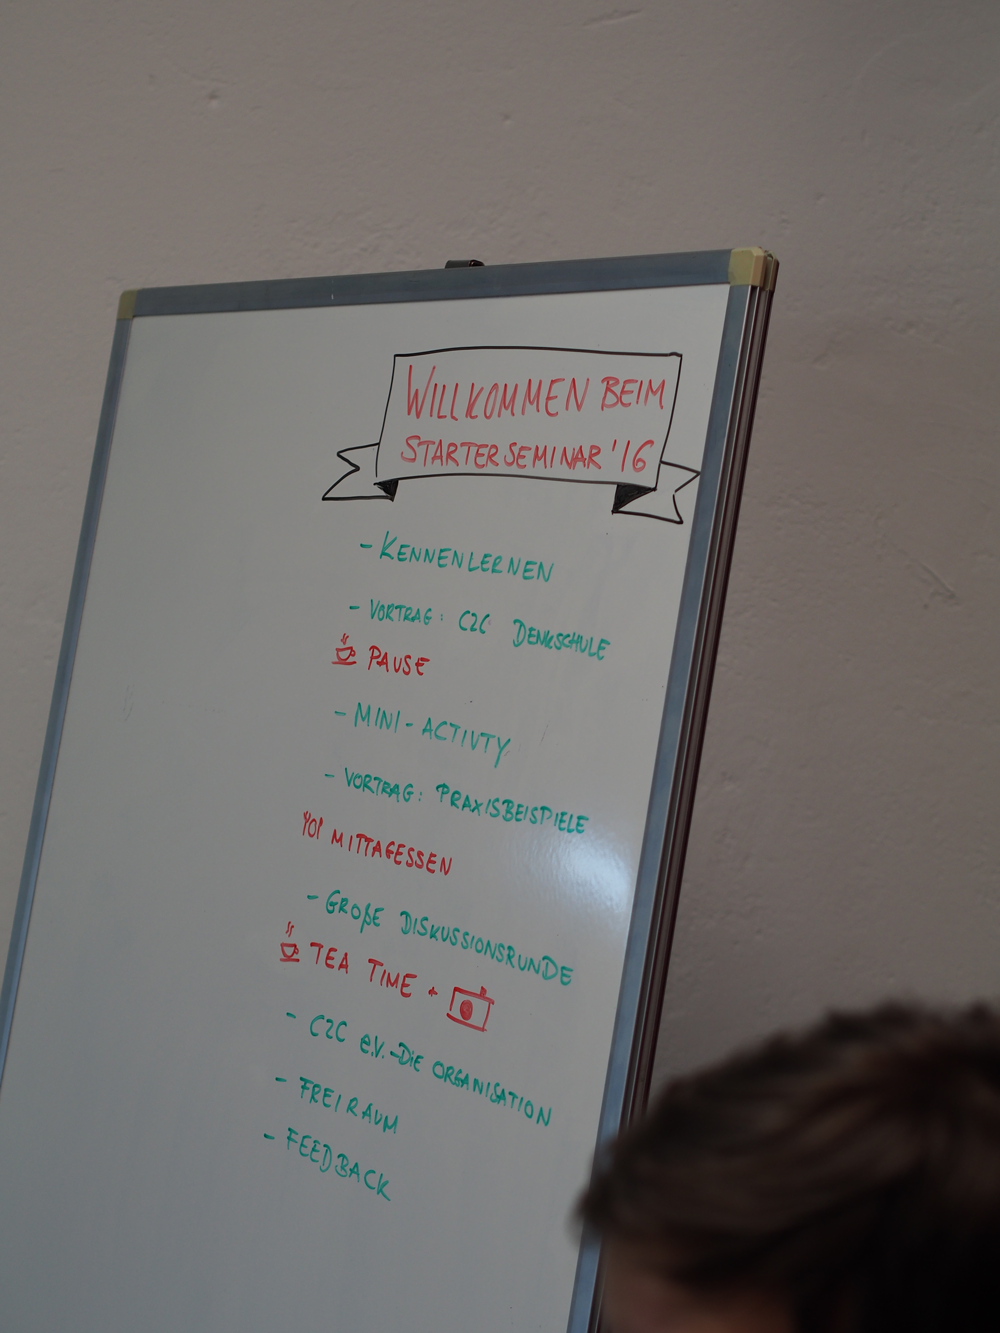 WILLKOMMEN BEIM
STARTERSEMINAR '16
- KENNENLERNEN
- VORTRAG: C2C DENKSCHULE
PAUSE
- MINI-ACTIVTY
- VORTRAG: PRAXISBEISPIELE
MITTAGESSEN
- GROßE DISKUSSIONSRUNDE
TEA TIME +
- C2C e.V. - DiE ORGANISATION
- FREIRAUM
- FEEDBACK